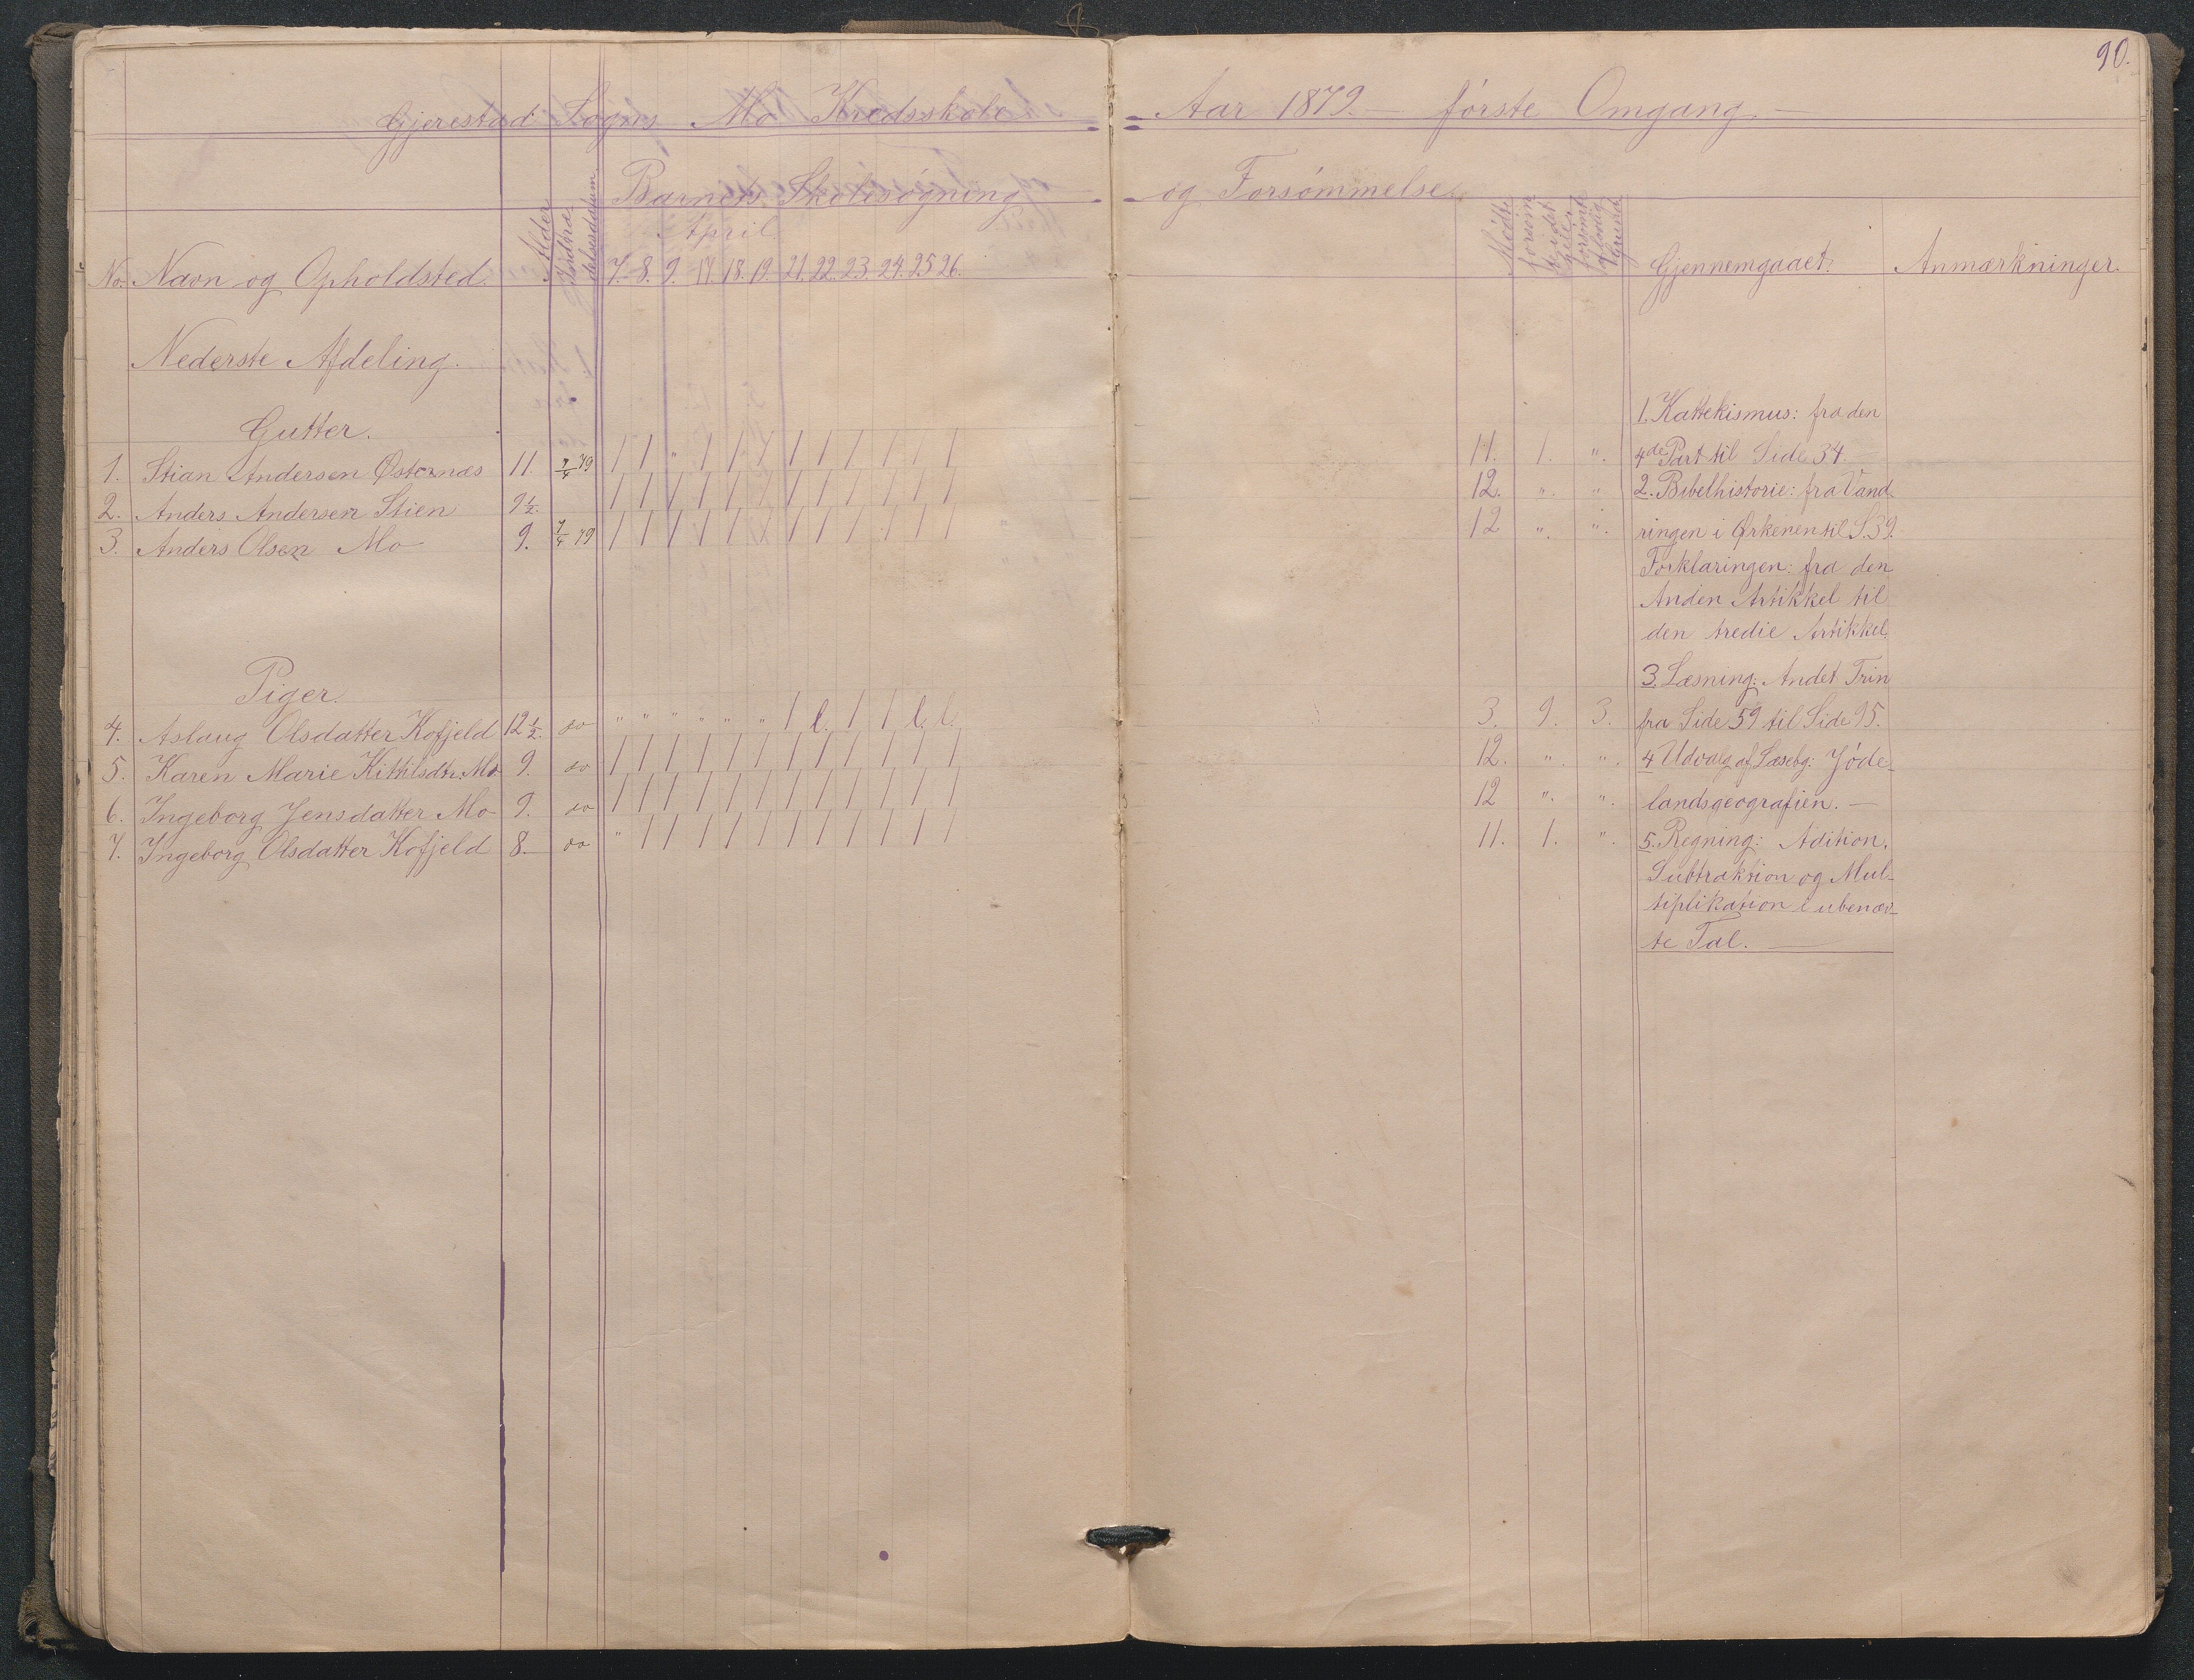 90.
Gjerestad Sogns Mo Kredsskole Aar 1879. — første Omgang —
Barnets Skolesøgning og Forsømmelse
No. Navn og Opholdsted. Alder Indtrædelsesdatum
April
7. 8. 9. 17. 18. 19. 21. 22. 23. 24. 25 26.
Mødt. Gjennemgaaet: Anmærkninger.
Nederste Afdeling.
Gutter.
1. Stian Andersen Østernæs 11. 7/4 79 / / " / / / / / / / / / 11. 1. ".
2. Anders Andersen Stien 9½. / / / / / / / / / / / / 12. ". "
3. Anders Olsen Mo 9. 7/4 79 / / / / / / / / / / / / 12 ". ".
Piger.
4. Aslaug Olsdatter Kofjeld 12½. do " " " " " " / l. / / l. l. 3. 9. 3.
5. Karen Marie Kittilsdtr. Mo 9. do / / / / / / / / / / / / 12. ". ".
6. Ingeborg Jensdatter Mo 9. do / / / / / / / / / / / / 12 ". ".
7. Ingeborg Olsdatter Kofjeld 8. do " / / / / / / / / / / / 11. 1. ".
1. Kattekismus: fra den
4de Part til Side 34.
2. Bibelhistorie: fra Vand-
ringen i Ørkenen til S. 39.
Forklaringen: fra den
Anden Artikkel til
den tredie Artikkel
3. Læsning: Andet Trin
fra Side 59 til Side 95.
4 Udvalg af Læsebg: Jøde-
landsgeografien. —
5. Regning: Adition,
Subtraktion og Mul-
tiplikation i ubenæv-
te Tal. —